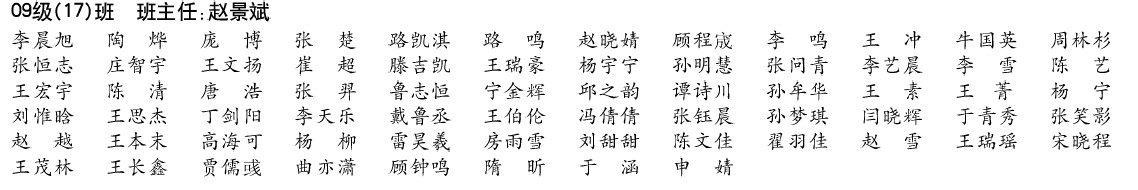 09级(17)班 班主任:赵景斌
李晨旭 陶烨 庞博 张楚 路凯淇 路鸣 赵晓婧 顾程宬 李鸣 王冲 牛国英 周林杉
张恒志 庄智宇 王文扬 崔超 滕吉凯 王瑞豪 杨宇宁 孙明慧 张问青 李艺晨 李雪 陈艺
王宏宇 陈清 唐浩 张羿 鲁志恒 宁金辉 邱之韵 谭诗川 孙牟华 王素 王菁 杨宁
刘惟晗 王思杰 丁剑阳 李天乐 戴鲁丞 王伯伦 冯倩倩 张钰晨 孙梦琪 闫晓辉 于青秀 张笑影
赵越 王本末 高海可 杨柳 雷昊羲 房雨雪 刘甜甜 陈文佳 翟羽佳 赵雪 王瑞瑶 宋晓程
王茂林 王长鑫 贾儒彧 曲亦潇 顾钟鸣 隋昕 于涵 申婧